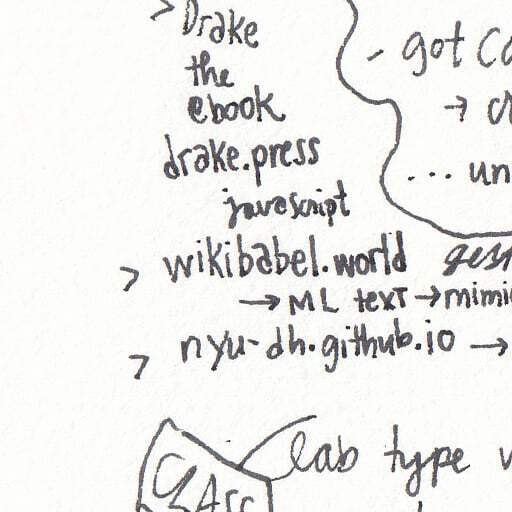 > Drake
the
ebook
drake.press
javascript
- got
→
... un
> wikibabel.world
→ ML text → mimi
> nyu-dh.github.io →
lab type